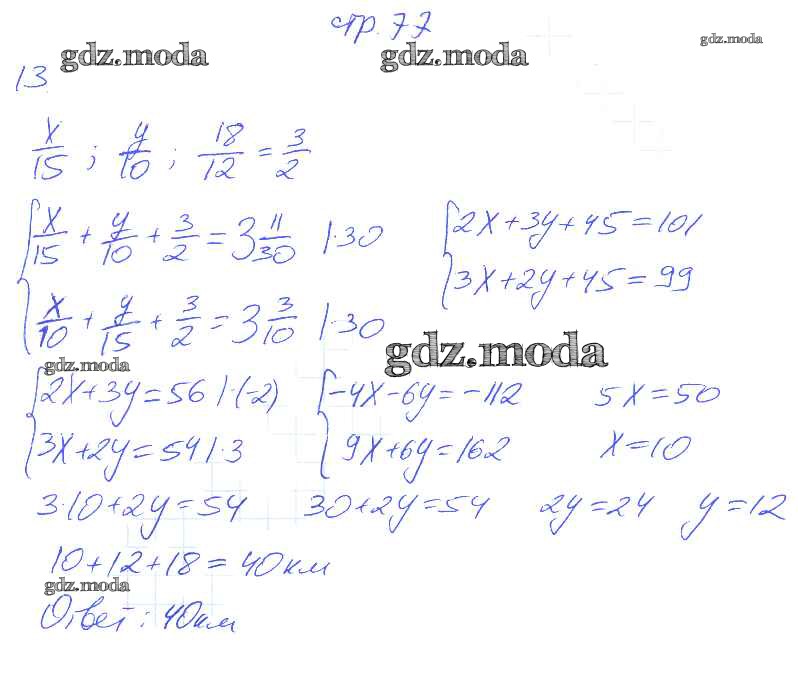 стр. 77
gdz.moda gdz.moda gdz.moda
13
x/15 ; y/10 ; 18/12 = 3/2
{ x/15 + y/10 + 3/2 = 3 11/30 |·30
{ x/10 + y/15 + 3/2 = 3 3/10 |·30
{ 2x+3y+45=101
{ 3x+2y+45=99
gdz.moda
gdz.moda
{ 2x+3y=56 |·(-2)
{ 3x+2y=54 |·3
{ -4x-6y=-112
{ 9x+6y=162
5x=50
x=10
3·10+2y=54 30+2y=54 2y=24 y=12
10+12+18=40км
gdz.moda
Ответ: 40км